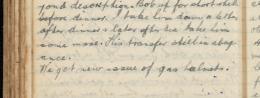 yond description. Bob up for short shell
before dinner. I take him down a letter
after dinner & later after tea take him
some more. His transfer still in abey
ance.
We get new issue of gas helmets.